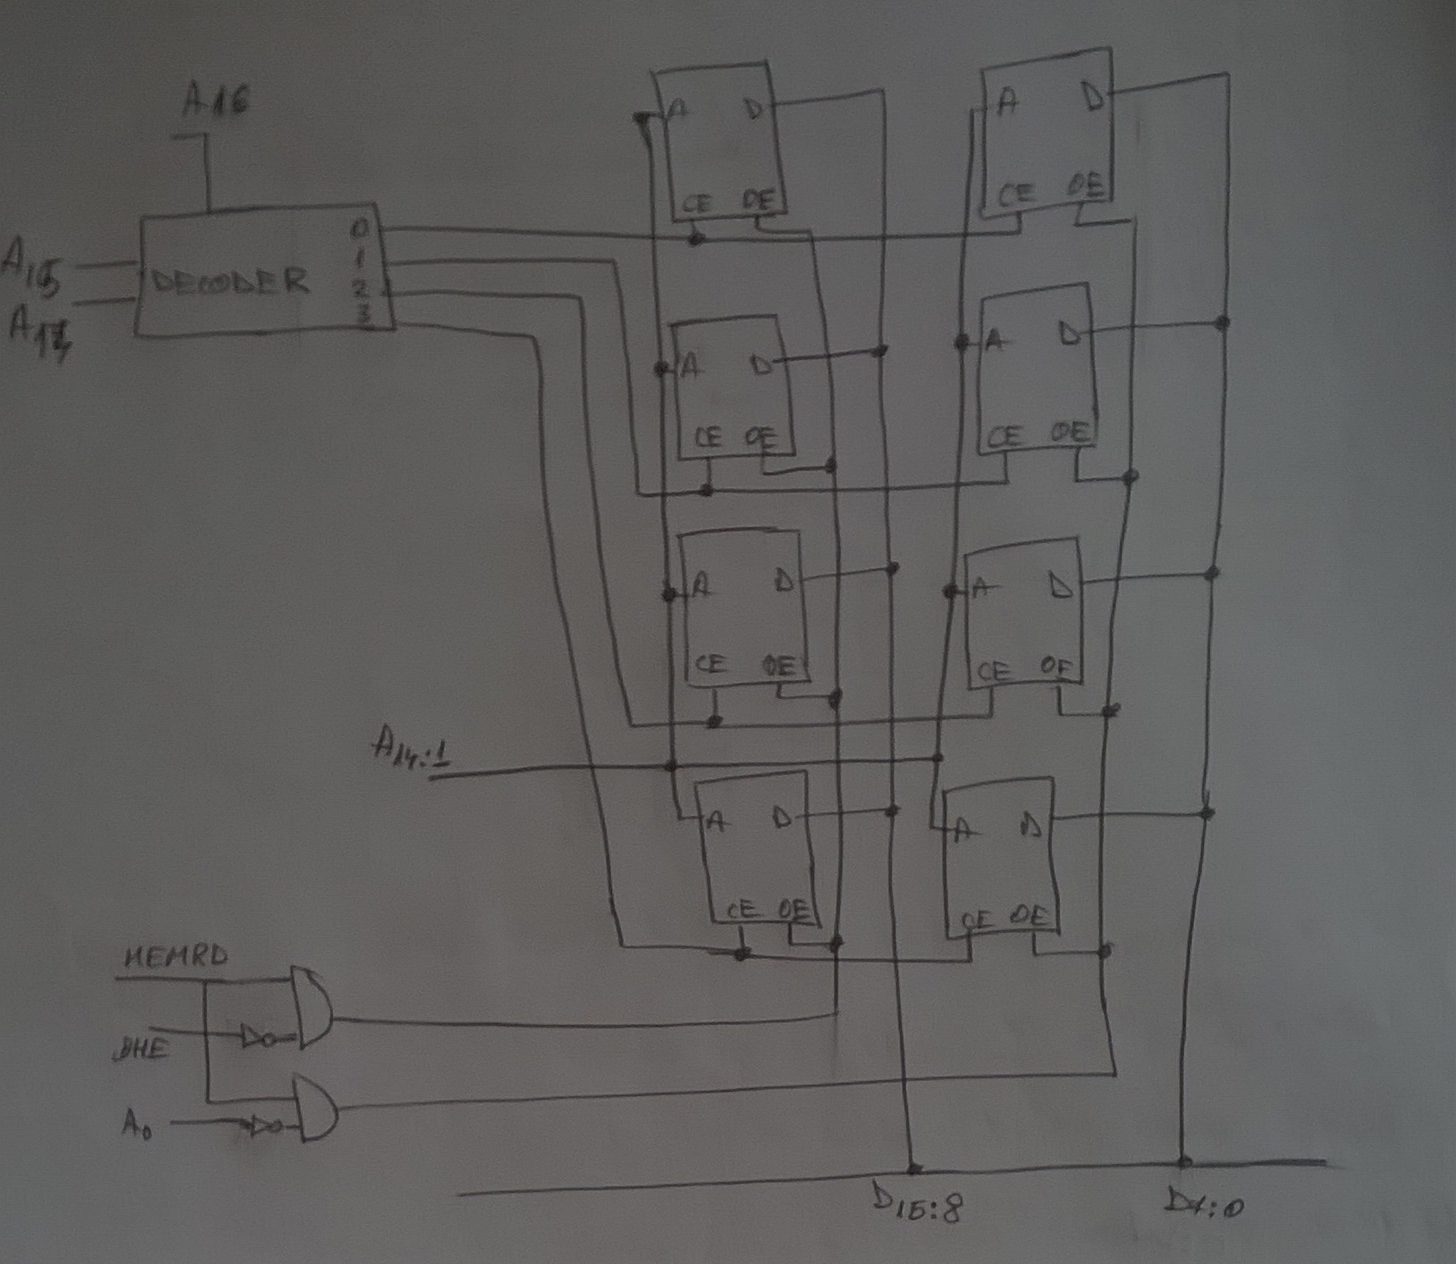 A16
A15
DECODER
0
1
2
3
A D
CE OE
A D
CE OE
A D
CE OE
A D
CE OE
A D
CE OE
A D
CE OE
A14:1
A D
CE OE
A D
CE OE
MEMRD
BHE
A0
D15:8
D7:0